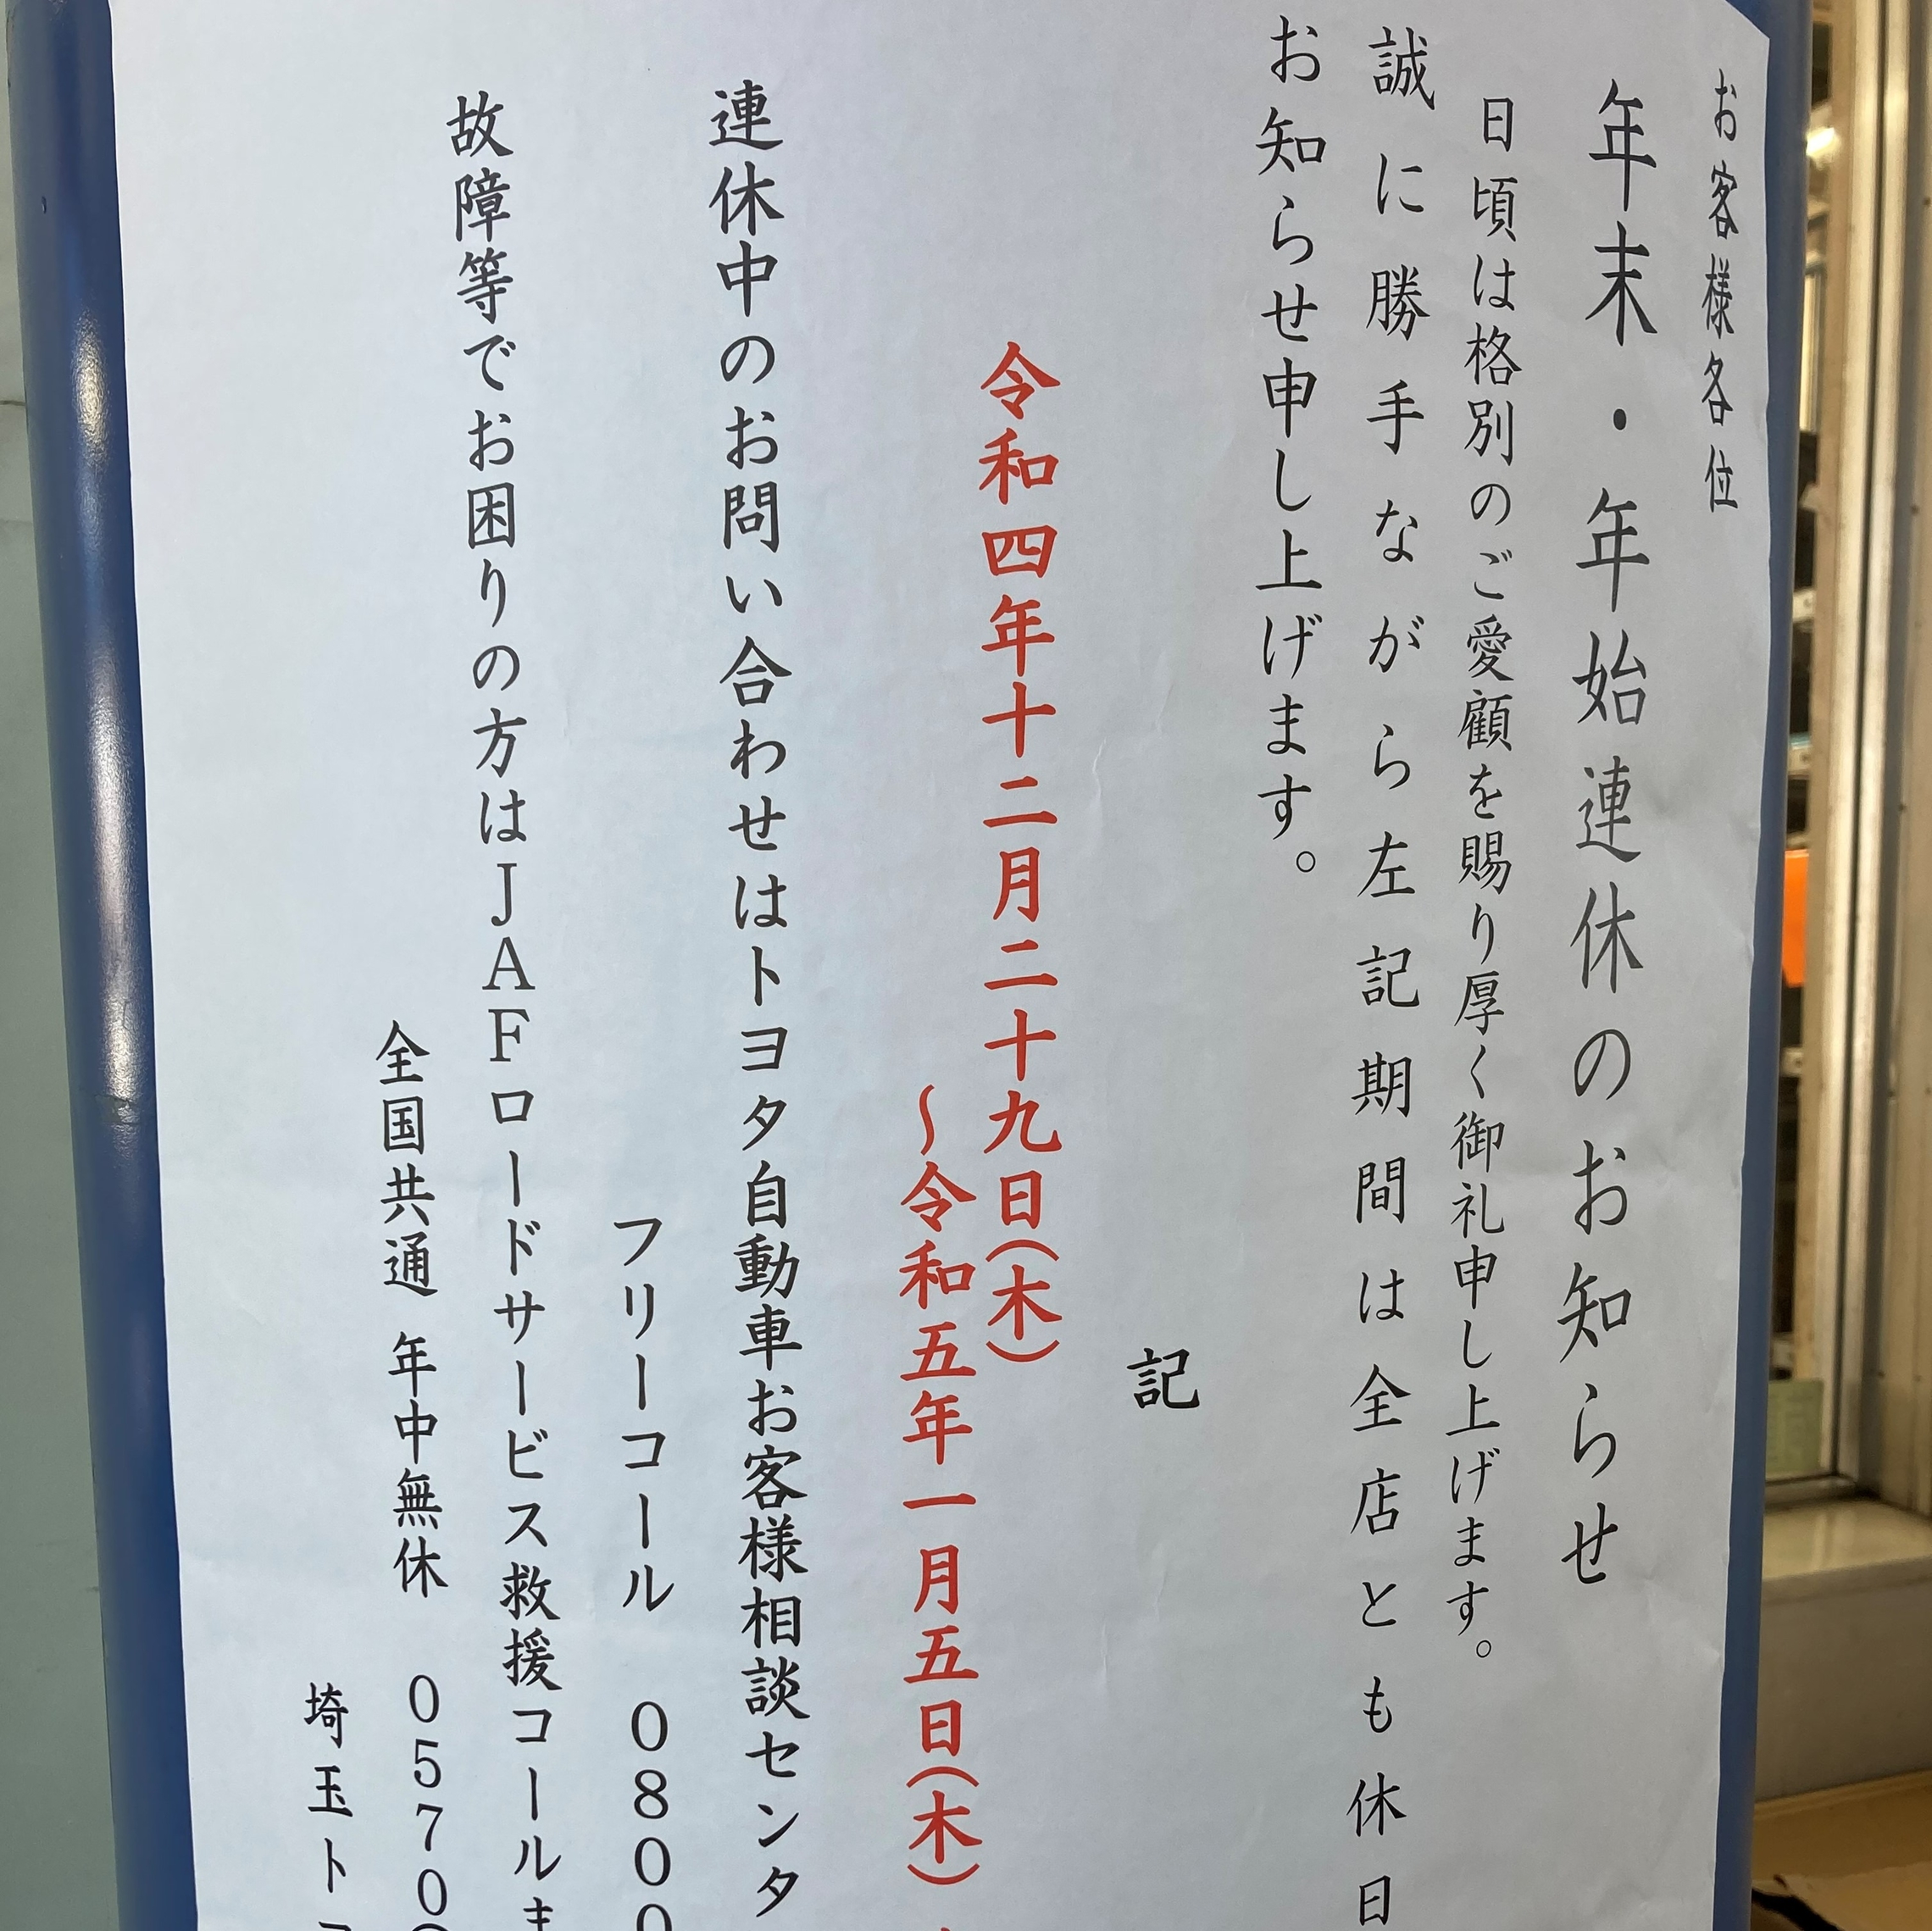 お客様各位
年末・年始連休のお知らせ
日頃は格別のご愛顧を賜り厚く御礼申し上げます。
誠に勝手ながら左記期間は全店とも休日
お知らせ申し上げます。
記
令和四年十二月二十九日(木)
～令和五年一月五日(木)
連休中のお問い合わせはトヨタ自動車お客様相談センタ
フリーコール 0800
故障等でお困りの方はJAFロードサービス救援コールま
全国共通 年中無休 0570
埼玉ト